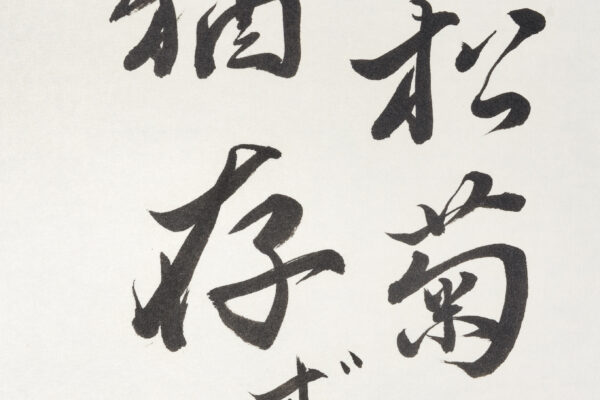 松菊
猶存